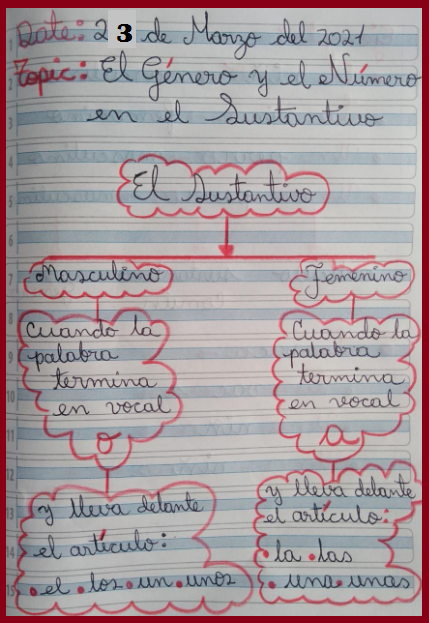 Date: 23 de Marzo del 2021
Topic: El Género y el Número
en el Sustantivo
El Sustantivo
Masculino
Cuando la
palabra
termina
en vocal
o
y lleva delante
el artículo:
• el • los • un • unos
Femenino
Cuando la
palabra
termina
en vocal
a
y lleva delante
el artículo:
• la • las
• una • unas